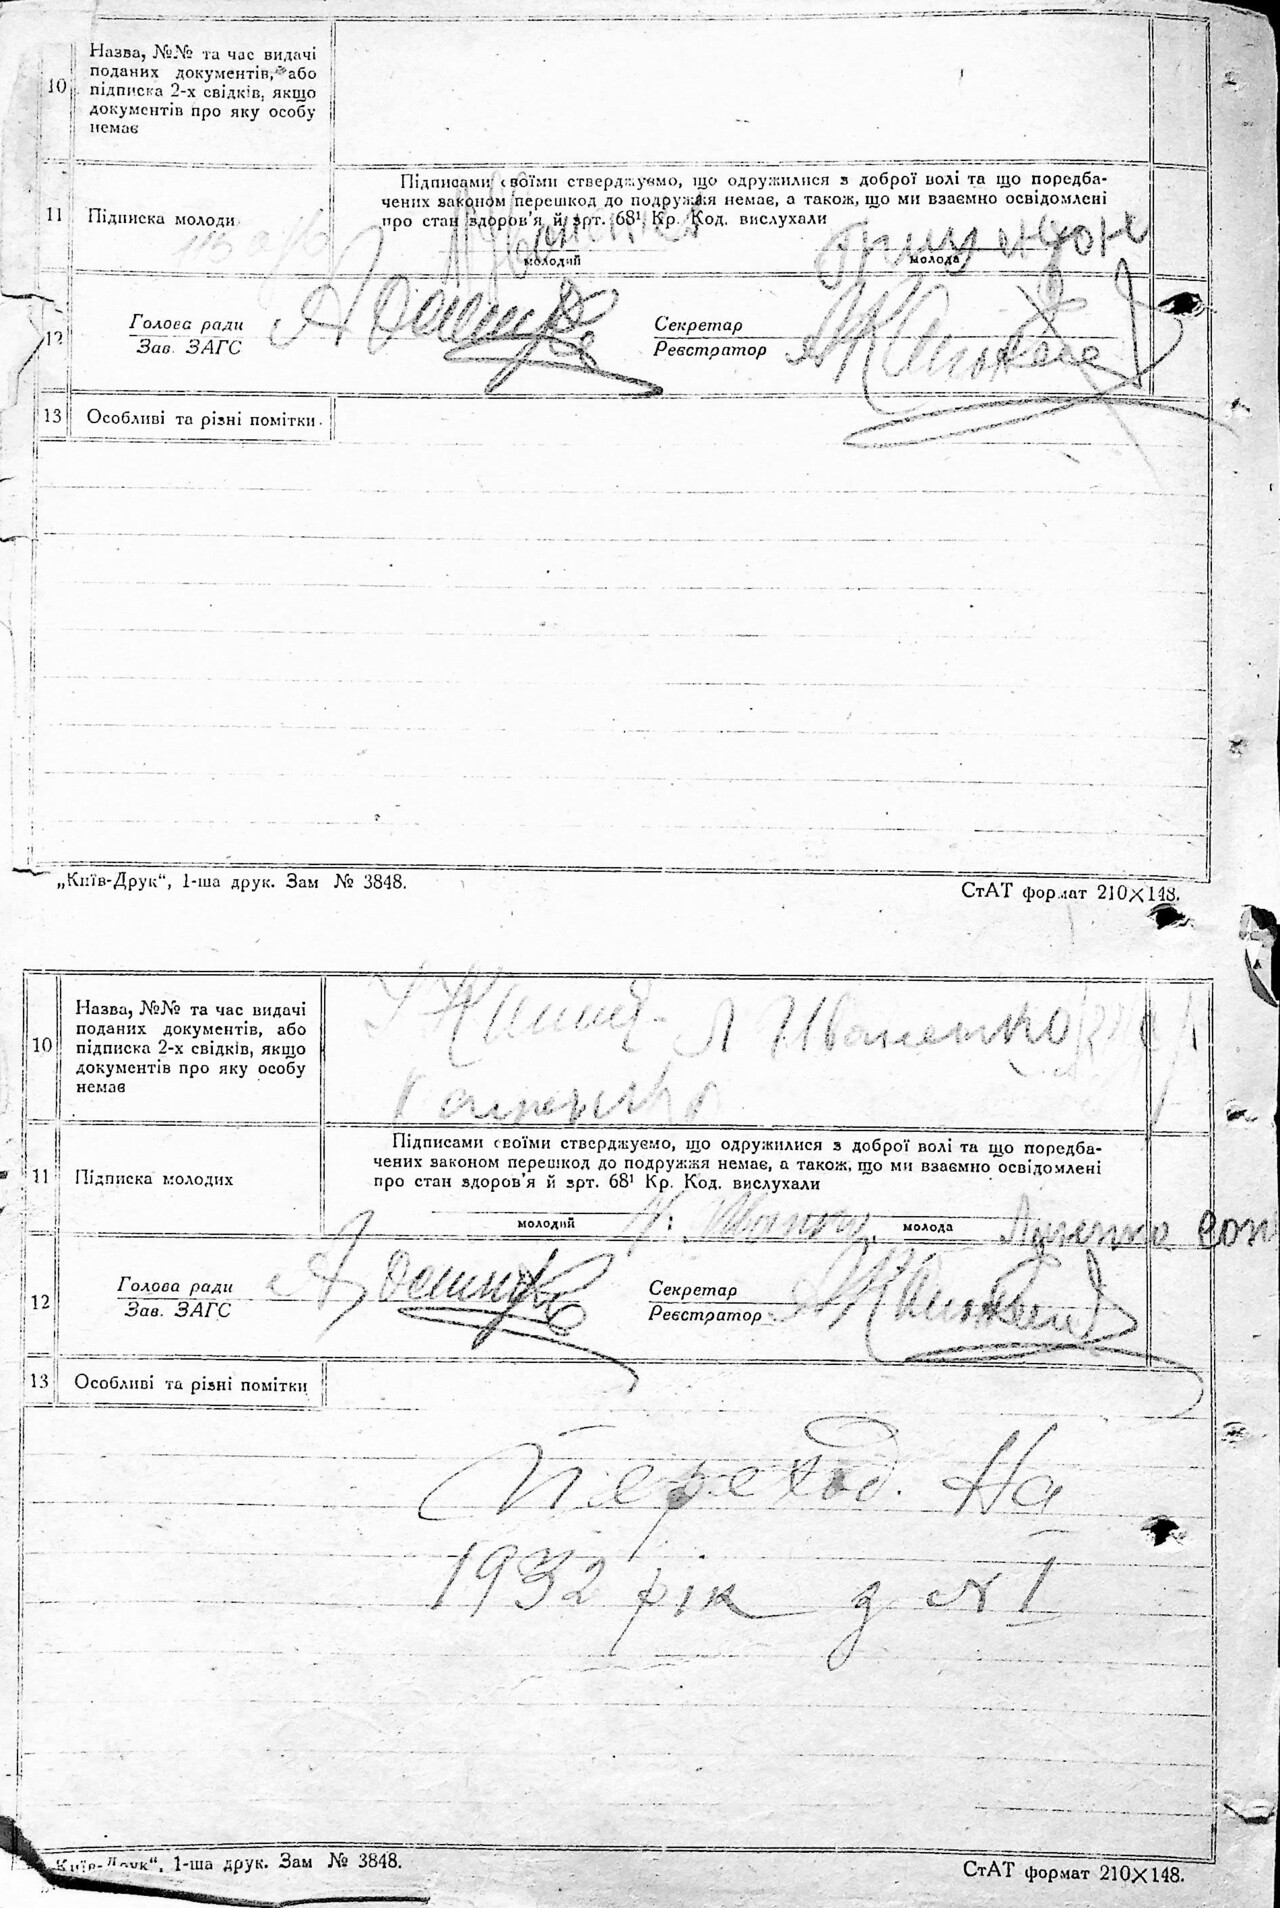 10
Назва, №№ та час видачі
поданих документів, або
підписка 2-х свідків, якщо
документів про яку особу
немає
11
Підписка молоди
Підписами своїми стверджуємо, що одружилися з доброї волі та що поредба-
чених законом перешкод до подружжя немає, а також, що ми взаємно освідомлені
про стан здоров'я й зрт. 68¹ Кр. Код. вислухали
молодий
молода
12
Голова ради
Зав. ЗАГС
Секретар
Реєстратор
13
Особливі та різні помітки.
„Київ-Друк“, 1-ша друк. Зам № 3848.
СтАТ формат 210×148.
10
Назва, №№ та час видачі
поданих документів, або
підписка 2-х свідків, якщо
документів про яку особу
немає
Л Иваненко
11
Підписка молодих
Підписами своїми стверджуємо, що одружилися з доброї волі та що поредба-
чених законом перешкод до подружжя немає, а також, що ми взаємно освідомлені
про стан здоров'я й зрт. 68¹ Кр. Код. вислухали
молодий
молода
12
Голова ради
Зав. ЗАГС
Секретар
Реєстратор
13
Особливі та різні помітки
Переход. На
1932 рік з № 1
Київ-Друк“, 1-ша друк. Зам № 3848.
СтАТ формат 210×148.